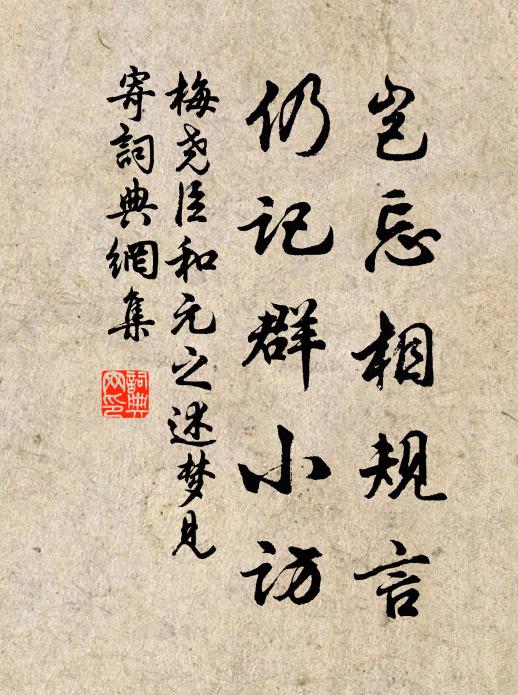 岂忘相规言
仍记群小访
梅尧臣和元之述梦见
寄詞典網集
詞典网印